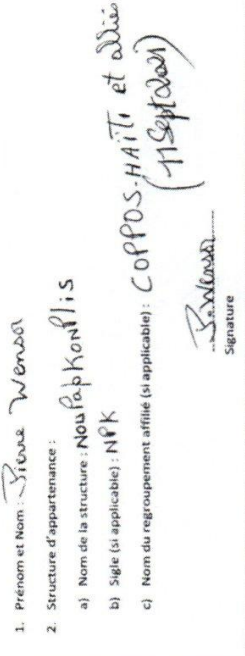 1. Prénom et Nom : Pierre Wensor
2. Structure d'appartenance :
a) Nom de la structure : NouPapKonPlis
b) Sigle (si applicable) : NPK
c) Nom du regroupement affilié (si applicable) : COPPOS-HAÏTI et alliés
(11 Sept 2021)
Signature